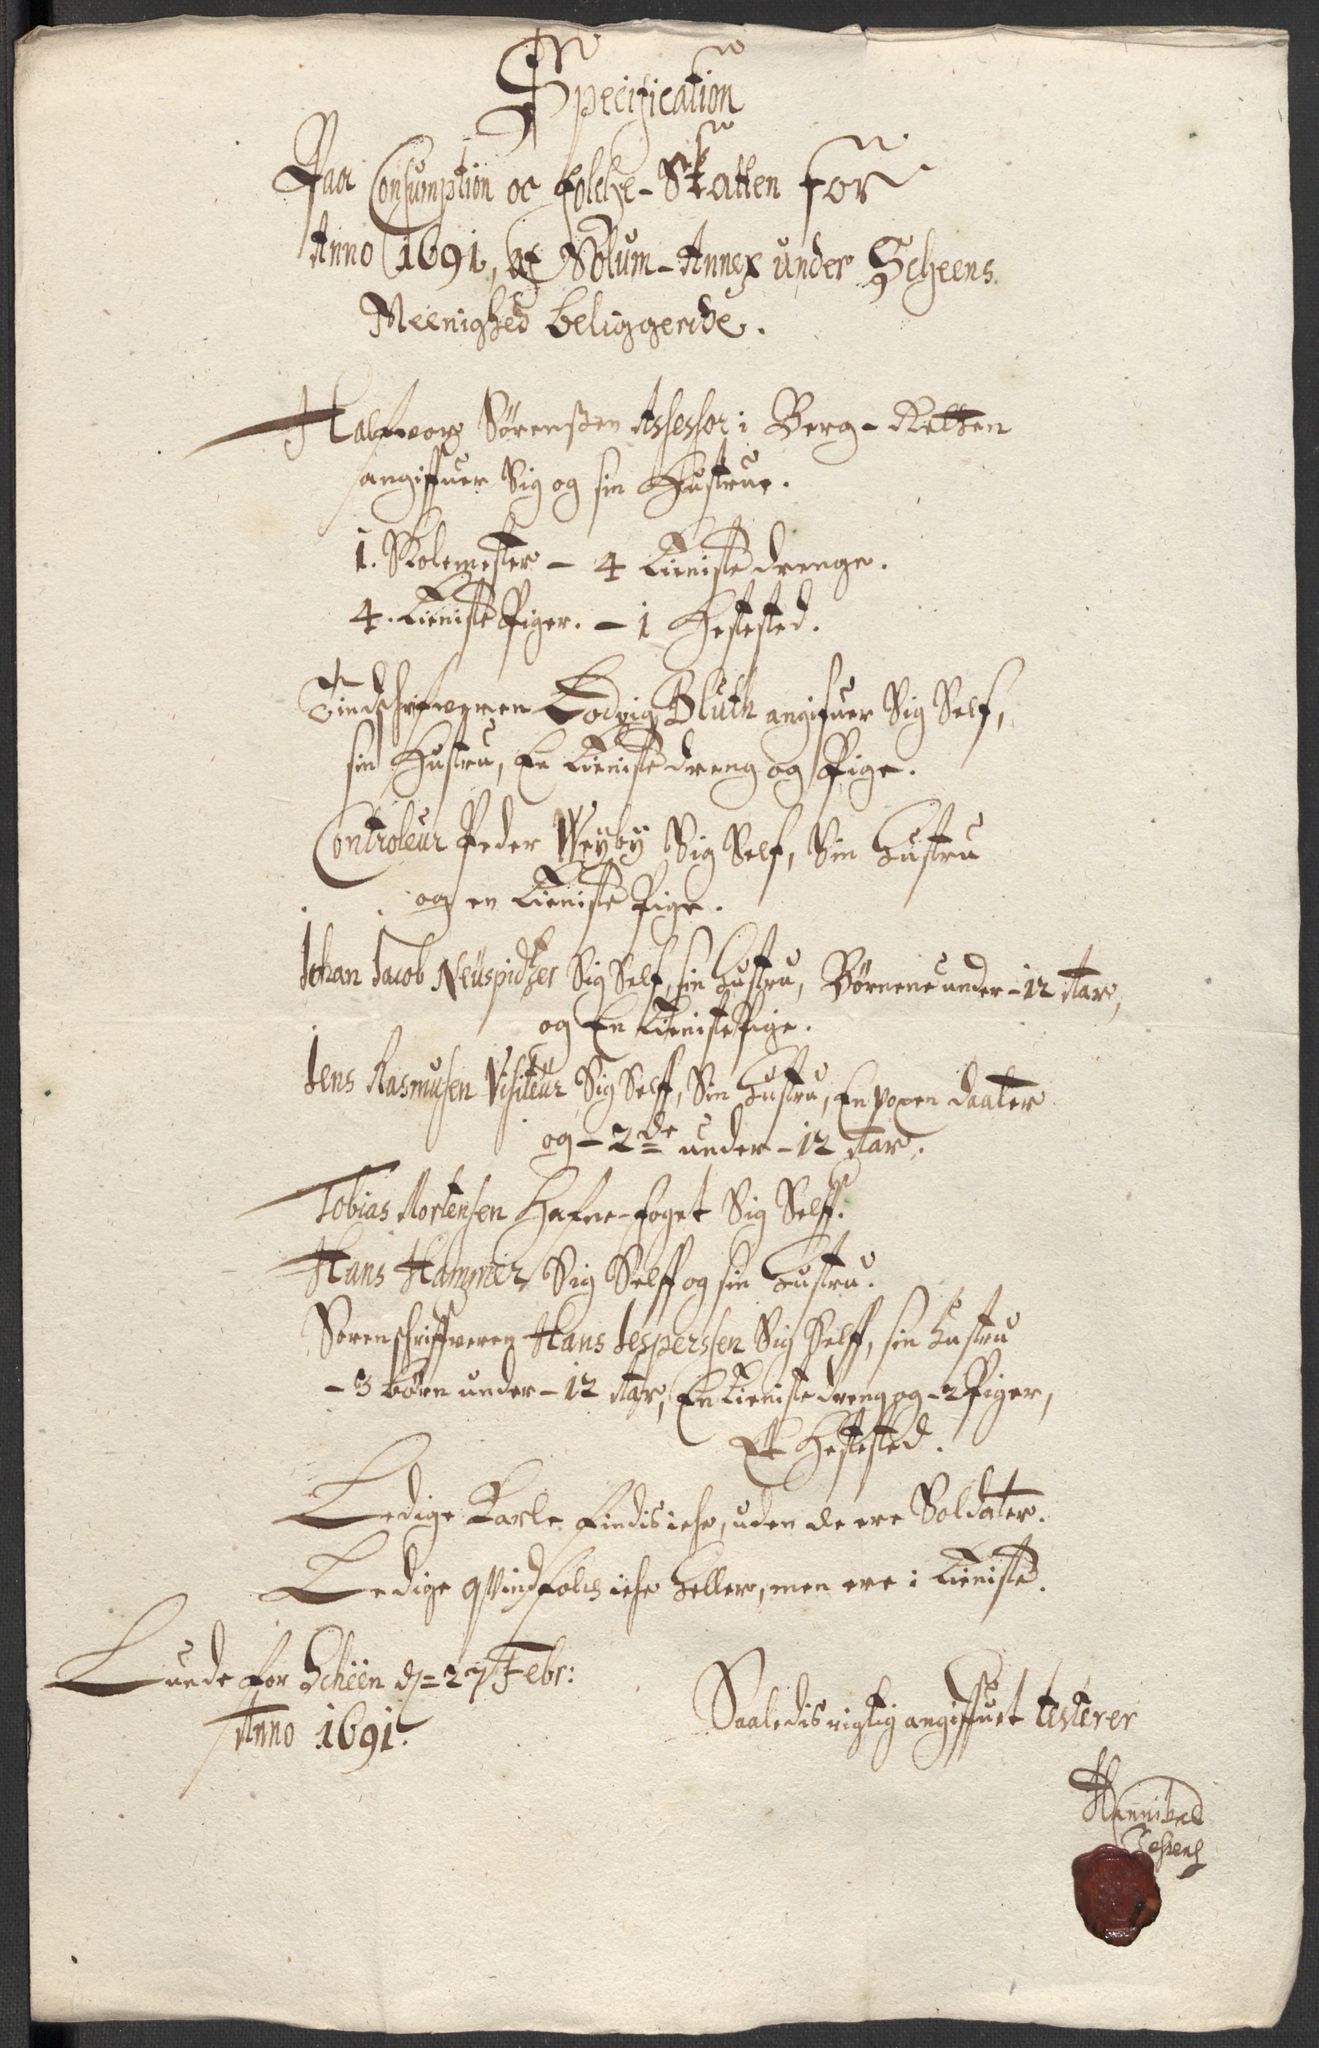 Specification
Paa Consumption oc Folche-Skatten for
Anno 1691, af Solum-Annex under Scheens
Meenighed beliggende.
Halfvor Sørenßen Assessor i Berg-Retten
angiffuer Sig og sin Hustrue.
1. Skolemester - 4 Tieniste drenge.
4. Tieniste Piger. - 1 Hestested.
Tiendschrifveren Lodvig Bluth angifuer Sig Self,
sin Hustru, En Tieniste dreng og Pige.
Controleur Peder Weyby Sig Self, Sin Hustru
og en Tieniste Pige.
Johan Jacob Neuspidtzer Sig Self, sin Hustru, Børnene under-12 Aar,
og En Tieniste Pige.
Jens Rasmusen Visiteur Sig Self, Sin Hustru, En voxen daater
og-2de under-12 Aar.
Tobias Mortensen Hafne-foget Sig Selff.
Hans Hammer Sig Selff og sin Hustru.
Sorenschriffveren Hans Jesperssen Sig Selff, sin Hustru
-3 børn under-12 Aar, En Tieniste dreng og-2 Piger,
Et Hestested.
Ledige Karle findis iche, uden de ere Soldater.
Ledige qvindfolch iche heller, men ere i Tieniste.
Lunde for Scheen d=27 Febr:
Anno 1691.
Saaledis rigtig angiffuet testerer
Hannibal